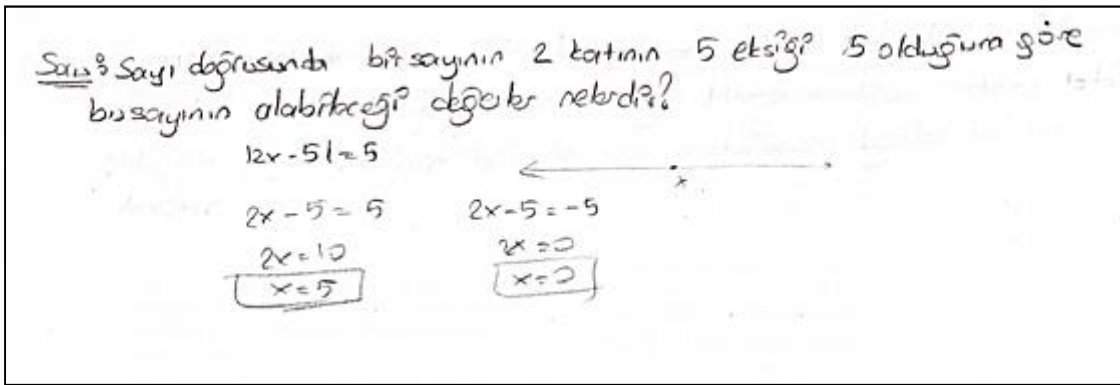 Soru: Sayı doğrusunda bir sayının 2 katının 5 eksiği 5 olduğuna göre
bu sayının alabileceği değerler nelerdir?
|2x-5|=5
x
2x-5=5 2x-5=-5
2x=10 2x=0
x=5 x=0